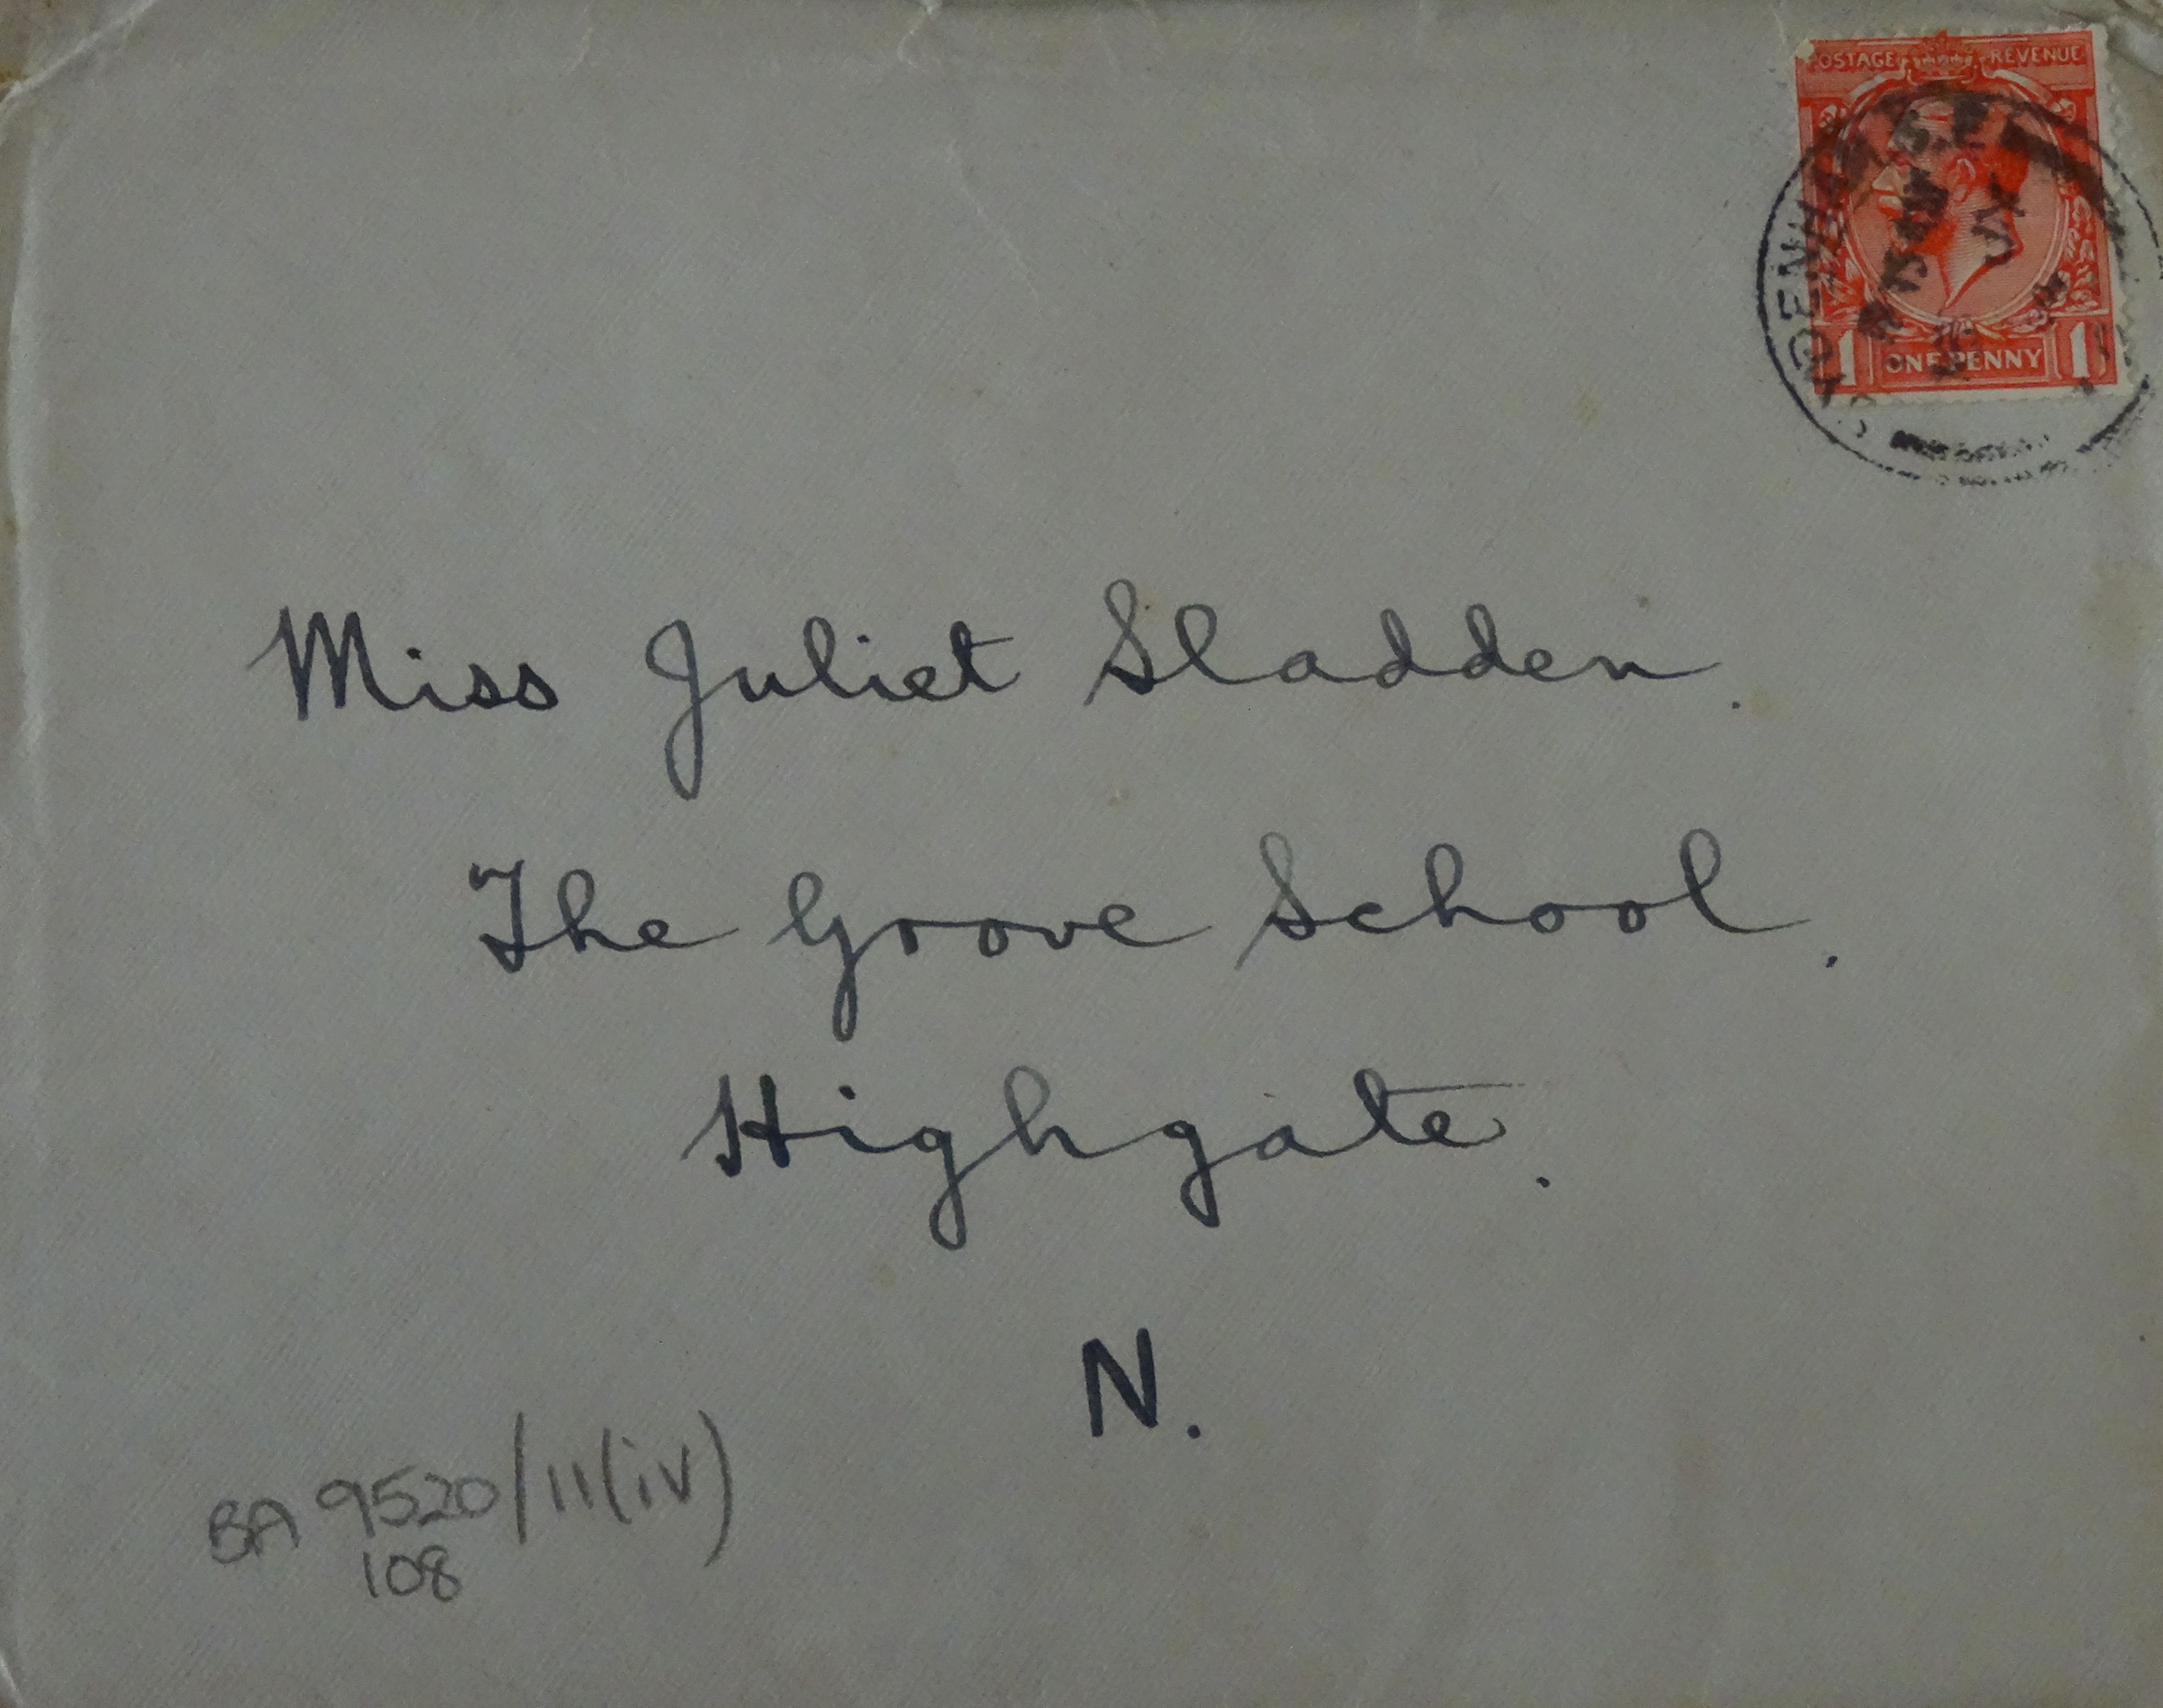 POSTAGE REVENUE
S.E.
1 ONE PENNY 1
Miss Juliet Sladden.
The Grove School.
Highgate.
N.
BA 9520/11(iv)
108